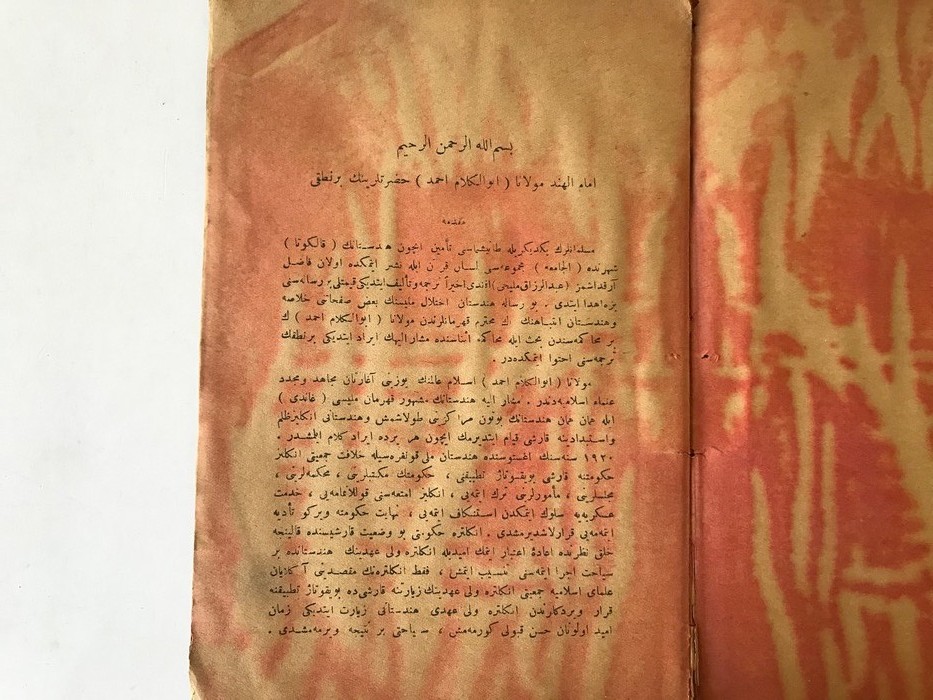 بسم الله الرحمن الرحيم
امام الهند مولانا ( ابوالكلام احمد ) حضرتلرينك بر نطقى
مقدمه
مسلمانلرك يكديكريله طانيشماسى تأمين ايچون هندستانك ( قالكوتا )
شهرنده ( الجامعه ) مجموعه‌سى لسان قرآن ايله نشر ايتمكده اولان فاضل
آرقداشمز (عبدالرزاق مليحى) افندى اخيراً ترجمه وتأليف ايتديكى قيمتلى بر رساله‌سنى
بزه اهدا ايتدى . بو رساله هندستان اختلال مليسنك بعض صفحاتنى خلاصه
وهندستان انتباهنك ك محترم قهرمانلرندن مولانا ( ابوالكلام احمد ) ك
بر محاكمه‌سندن بحث ايله محاكمه اثناسنده مشار اليهك ايراد ايتديكى بر نطقك
ترجمه‌سنى احتوا ايتمكده‌در .
مولانا ( ابوالكلام احمد ) اسلام عالمنك يوزنى آغارتان مجاهد ومجدد
علماء اسلاميه‌دندر . مشار اليه هندستانك مشهور قهرمان مليسى ( غاندى )
ايله همان همان هندستانك بوتون مراكزنى طولاشمش وهندستانى انكليز ظلم
واستبدادينه قارشى قيام ايتديرمك ايچون هر يرده ايراد كلام ايلمشدر .
١٩٢٠ سنه‌سنك اغستوسنده هندستان ملى قونغره‌سيله خلافت جمعيتى انكليز
حكومتنه قارشى بويقوتاژ تطبيقنى ، حكومتك مكتبلرينى ، محكمه‌لرينى ،
مجلسلرينى ، مأمورلرينى ترك ايتمه‌يى ، انكليز امتعه‌سنى قوللانمامه‌يى ، خدمت
عسكريه‌يه سلوك ايتمكدن استنكاف ايتمه‌يى ، نهايت حكومته ويركو تأديه
ايتمه‌مه‌يى قرارلاشديرمشدى . انكلتره حكومتى بو وضعيت قارشيسنده قالينجه
خلق نظرنده اعادۀ اعتبار ايتمك اميديله انكلتره ولى عهدينك هندستانده بر
سياحت اجرا ايتمه‌سنى تنسيب ايتمش ، فقط انكلتره‌نك مقصدينى آكلايان
علماى اسلاميه جمعيتى انكلتره ولى عهدينك زيارتنه قارشى‌ده بويقوتاژ تطبيقنه
قرار ويردكلرندن انكلتره ولى عهدى هندستانى زيارت ايتديكى زمان
اميد اولونان حسن قبولى كورمه‌مش ، سياحتى بر نتيجه ويرمه‌مشدى .